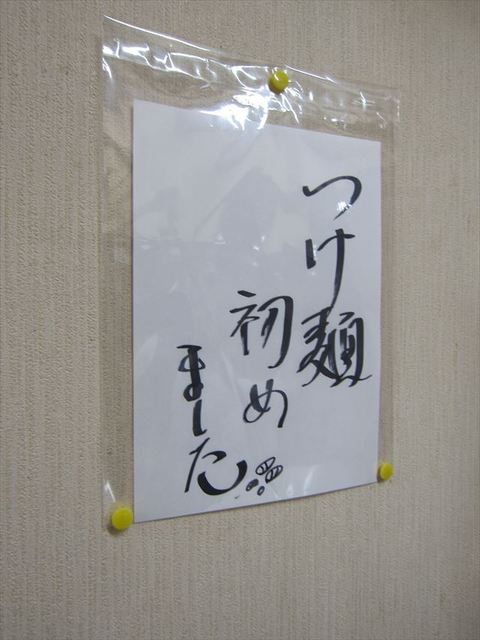 つけ麺
初め
ました